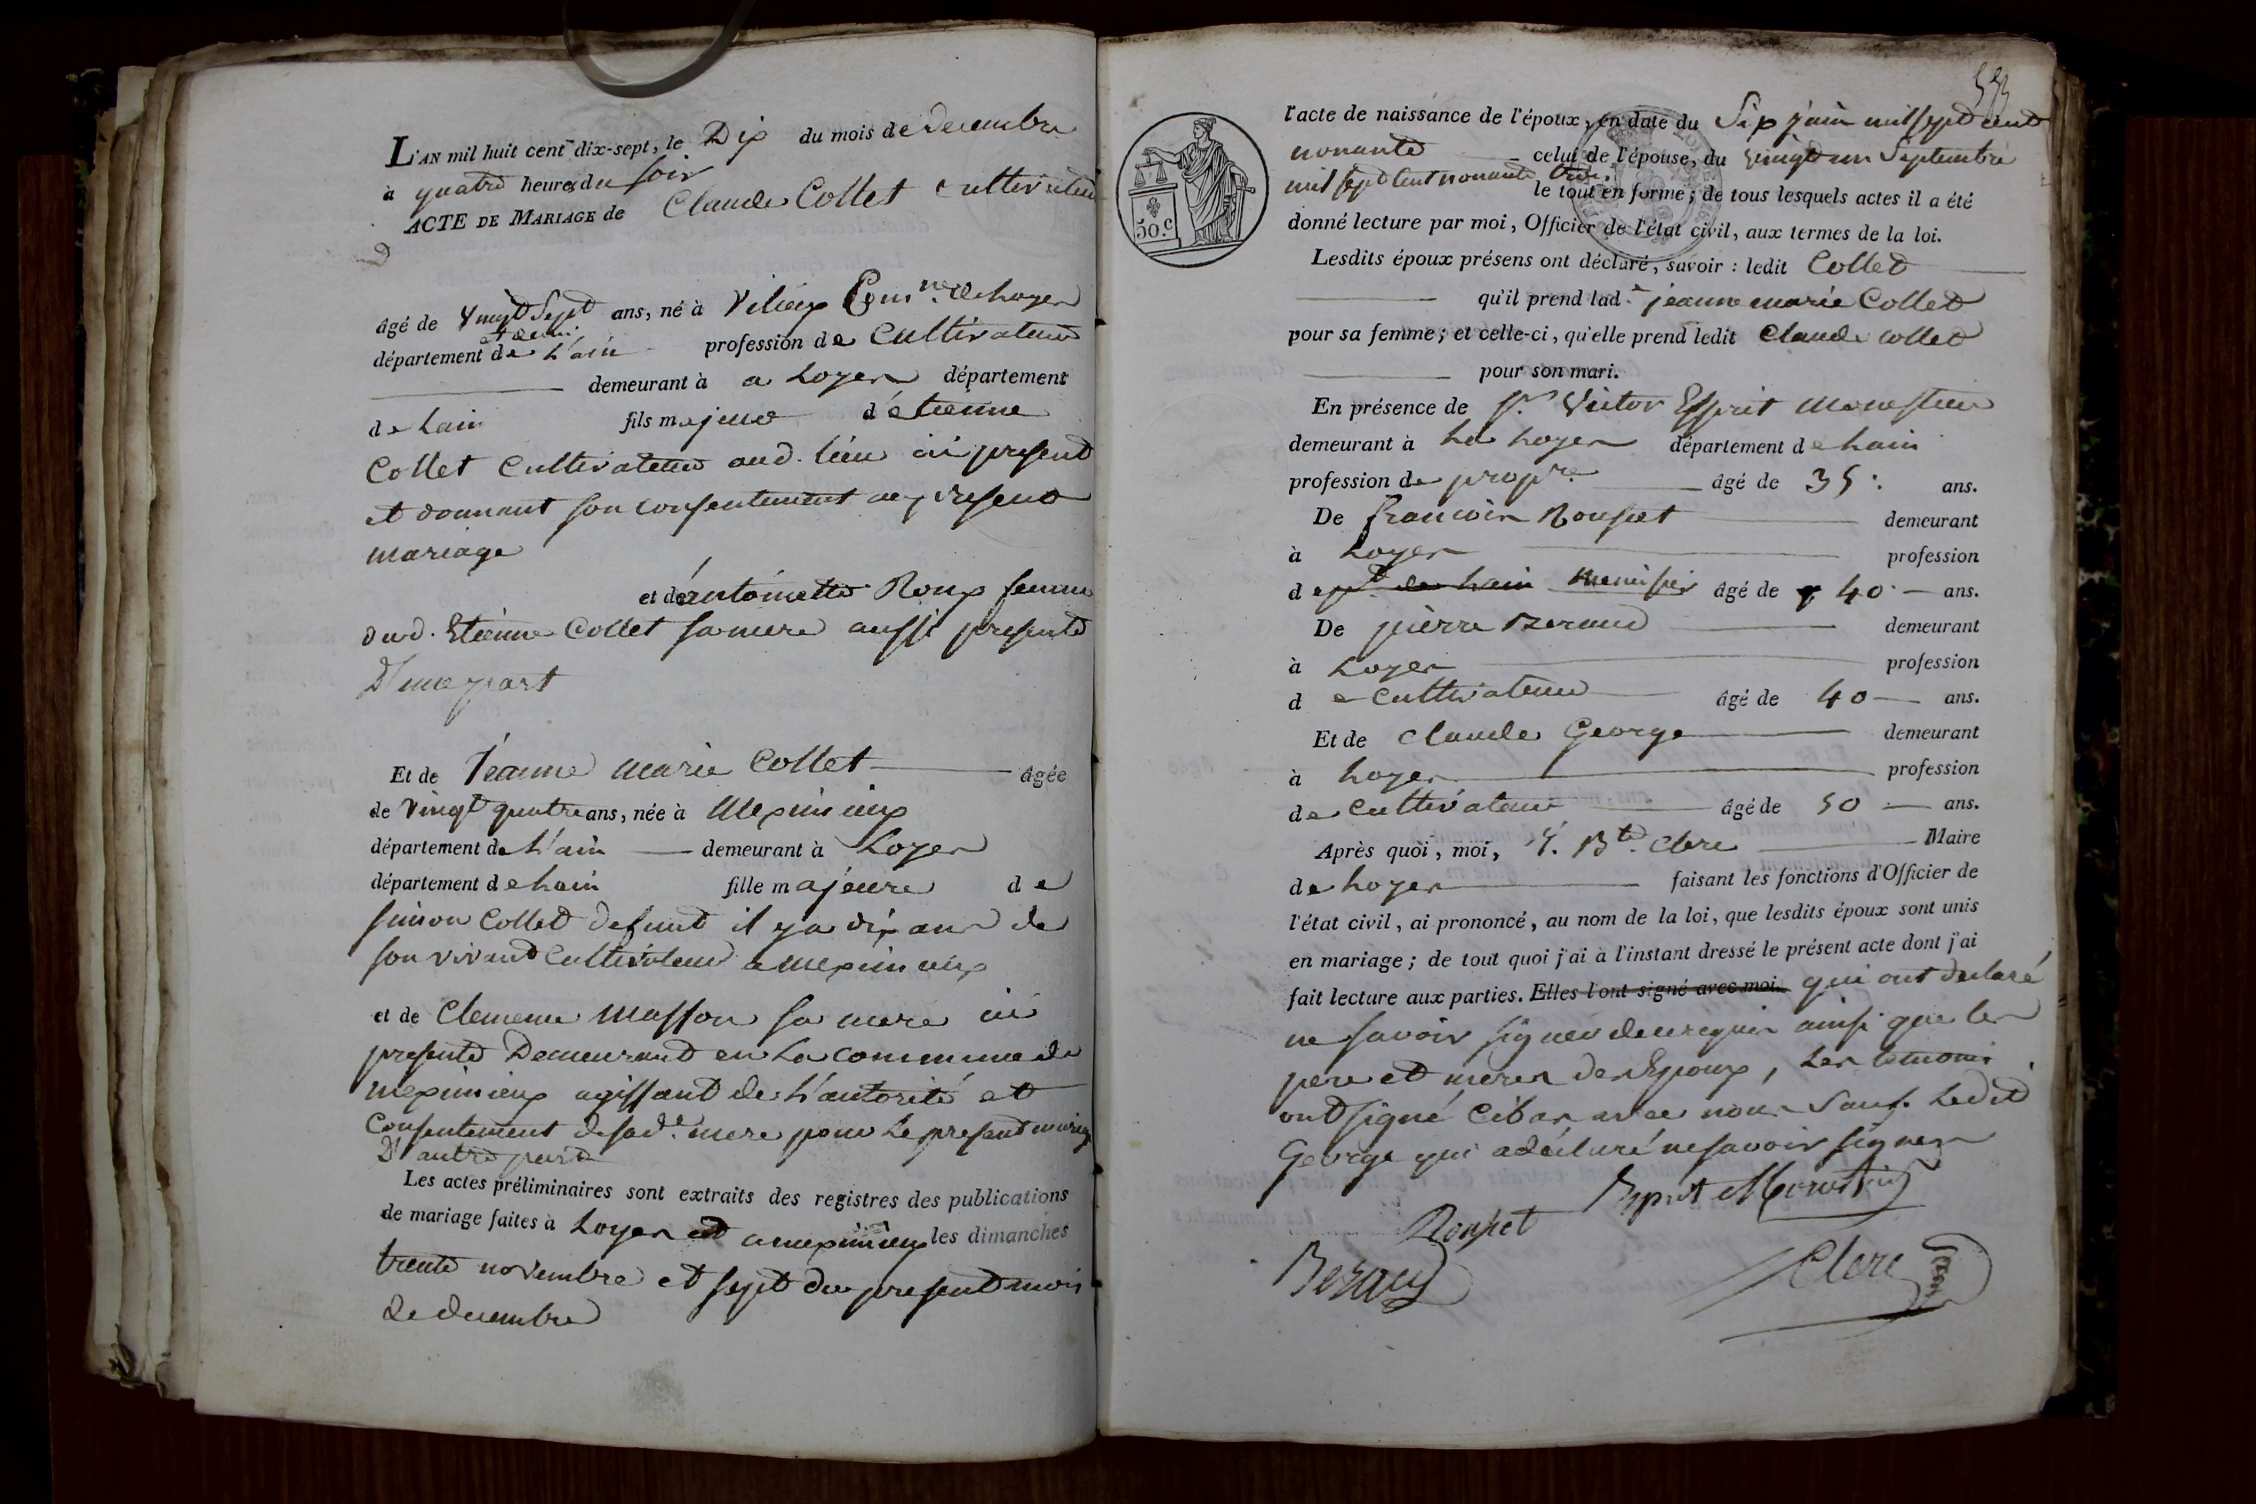 L'AN mil huit cent dix-sept, le Dix du mois de decembre
à quatre heures du soir
ACTE DE MARIAGE de Claude Collet cultivateur
âgé de vingt Sept ans, né à Vilieux Com.ne de Loyes
et demi
département de L'ain profession de Cultivateur
demeurant à a Loyes département
de Lain fils majeur d'étienne
Collet Cultivateur aud. lieu ici present
et donnant son consentement au present
mariage
et de antoinette Roux femme
dud. Etienne Collet sa mere aussi presente
D'une part
Et de Jeanne Marie Collet âgée
de vingt quatre ans, née à Meximieux
département de L'ain demeurant à Loyes
département de Lain fille majeure de
simon Collet defunt il y a dix ans de
son vivant Cultivateur a Meximieux
et de Clemence Masson sa mere ici
presente Demeurant en La commune de
meximieux agissant de L'autorité et
Consentement de sad.e mere pour Le present mariage
D'autre part
Les actes préliminaires sont extraits des registres des publications
de mariage faites à Loyes et a meximieux les dimanches
trente novembre et sept du present mois
de decembre
l'acte de naissance de l'époux, en date du Six juin mil sept cent
nonante celui de l'épouse, du vingt un Septembre
mil sept cent nonante trois.
le tout en forme; de tous lesquels actes il a été
donné lecture par moi, Officier de l'état civil, aux termes de la loi.
50.c
Lesdits époux présens ont déclaré, savoir : ledit Collet
qu'il prend lad.e jeanne marie Collet
pour sa femme; et celle-ci, qu'elle prend ledit Claude collet
pour son mari.
En présence de S.r Victor Esprit Monestier
demeurant à La Loyes département de Lain
profession de prop.re âgé de 35. ans.
De francois Rousset demeurant
à Loyes profession
de pt de Lain menusier âgé de 40 ans.
De pierre Beraud demeurant
à Loyes profession
de cultivateur âgé de 40 ans.
Et de Claude George demeurant
à Loyes profession
de cultivateur âgé de 50 ans.
Après quoi, moi, J. B.te Clerc Maire
de Loyes faisant les fonctions d'Officier de
l'état civil, ai prononcé, au nom de la loi, que lesdits époux sont unis
en mariage; de tout quoi j'ai à l'instant dressé le présent acte dont j'ai
fait lecture aux parties. Elles l'ont signé avec moi. qui ont declaré
ne savoir signer de ce requis ainsi que les
pere et meres des Epoux, Les temoins
ont signé Cibas avec nous Sauf Ledit
George qui a déclaré ne savoir signer
Esprit Monestier
Rousset
Beraud
Clerc